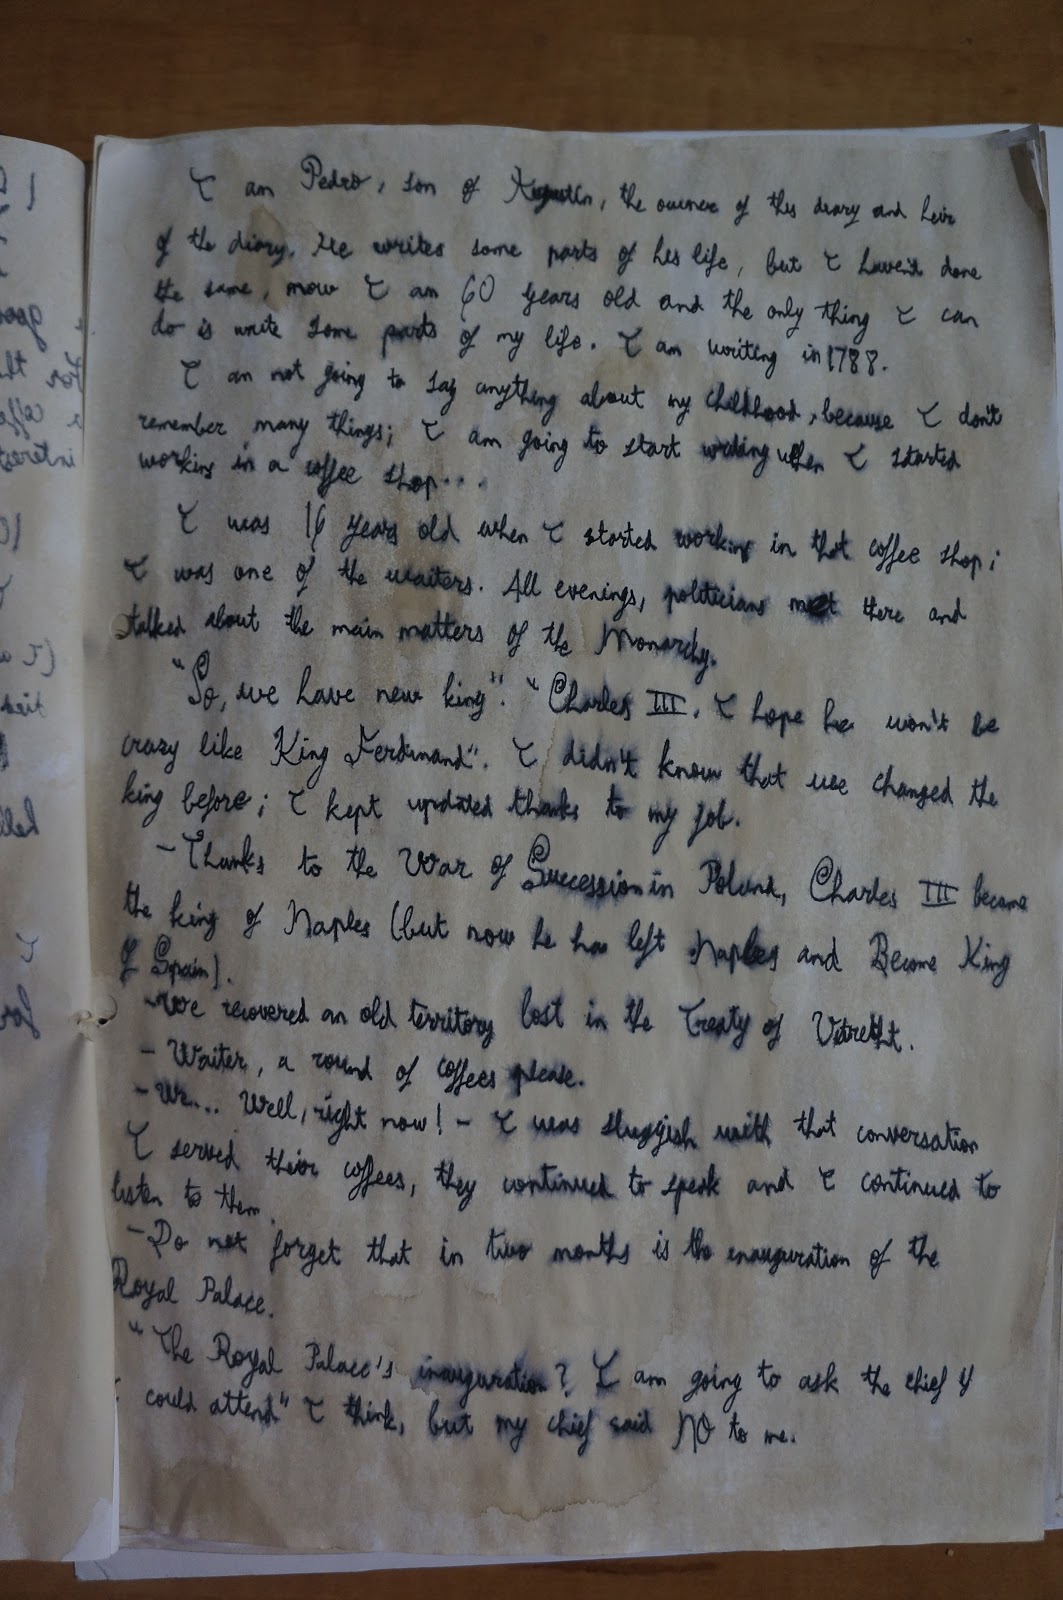 I am Pedro, son of Agustín, the owner of this diary and heir
of the diary. He writes some parts of his life, but I haven't done
the same, now I am 60 years old and the only thing I can
do is write some parts of my life. I am writing in 1788.
I am not going to say anything about my childhood, because I don't
remember many things; I am going to start writing when I started
working in a coffee shop...
I was 16 years old when I started working in that coffee shop;
I was one of the waiters. All evenings, politicians met there and
talked about the main matters of the Monarchy.
"So, we have new king". "Charles III. I hope he won't be
crazy like King Ferdinand". I didn't know that we changed the
king before; I kept updated thanks to my job.
- Thanks to the War of Succession in Poland, Charles III become
the king of Naples (but now he has left Naples and Become King
of Spain).
- We recovered an old territory lost in the Treaty of Utretht.
- Waiter, a round of coffees please.
- We... Well, right now! - I was sluggish with that conversation
I served their coffees, they continued to speak and I continued to
listen to them.
- Do not forget that in two months is the inauguration of the
Royal Palace.
"The Royal Palace's inauguration? I am going to ask the chief if
I could attend" I think, but my chief said NO to me.
goog